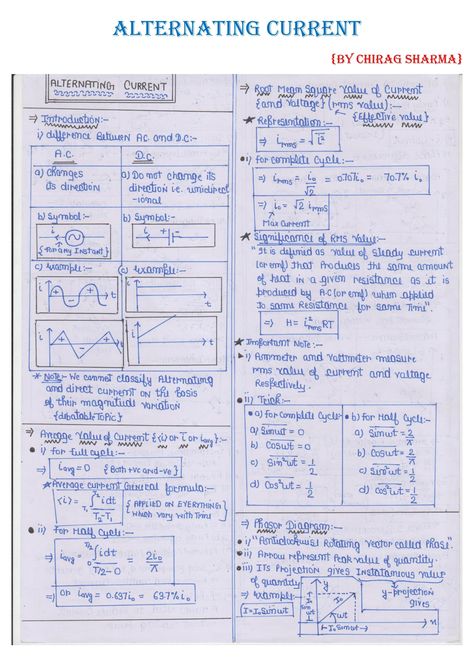 ALTERNATING CURRENT
{BY CHIRAG SHARMA}
ALTERNATING CURRENT
⇒ Introduction:-
i) difference Between A.C. and D.C:-
A.C. D.C.
a) Changes its direction
a) Do not change its direction i.e. unidirectional
b) Symbol:-
i
{For any Instant}
b) Symbol:-
i + -
c) Example:-
i + - t
i + - t
c) Example:-
i t
i t
* Note:- We cannot classify Alternating
and direct current on the basis
of their magnitudal variation
{debatable Topic}
⇒ Average Value of Current {<i> or ī or iavg}:-
i) for full cycle:-
⇒ iavg = 0 {Both +ve and -ve}
★ Average current General formula:-
<i> = ∫T₁^T₂ i dt / T₂-T₁ {APPLIED ON EVERYTHING which vary with Time}
ii) For Half Cycle:-
⇒ iavg = ∫0^T/2 i dt / T/2-0 = 2i₀/π
⇒ or iavg = 0.637i₀ = 63.7% i₀
⇒ Root Mean Square Value of Current
{and Voltage} (rms value):-
{Effective value}
★ Representation:-
⇒ irms = √i²
i) For complete Cycle:-
⇒ irms = i₀/√2 = 0.707i₀ = 70.7% i₀
⇒ i₀ = √2 irms
Max Current
★ Significance of RMS Value:-
"It is defined as value of steady current
(or emf) that Produces the same amount
of heat in a given resistance as it is
produced by A.C (or emf) when applied
to same Resistance for same Time".
⇒ H = i²rms RT
★ Important Note:-
i) Ammeter and Voltmeter measure
rms value of current and voltage
Respectively.
ii) Trick:-
a) For Complete Cycle:-
a) Sinωt = 0
b) Cosωt = 0
c) Sin²ωt = 1/2
d) Cos²ωt = 1/2
b) For Half Cycle:-
a) Sinωt = 2/π
b) Cosωt = 2/π
c) Sin²ωt = 1/2
d) Cos²ωt = 1/2
⇒ Phasor Diagram:-
i) "Anticlockwise Rotating Vector called Phase".
ii) Arrow represent Peak value of quantity.
iii) Its Projection gives Instataneous value
of quantity
⇒ Example:-
I = I₀ Sinωt
y
I₀ sin ωt
I₀
ωt
I = I₀ Sinωt
x
y-projection
gives